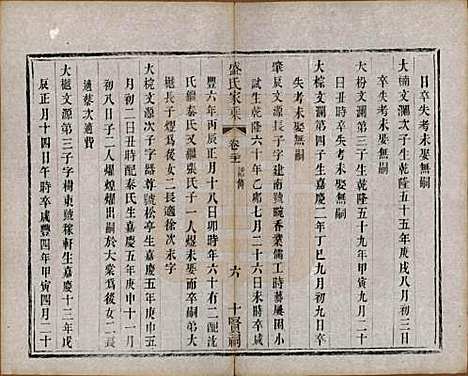 日卒失考未娶無嗣
大楠文瀾第三子生乾隆五十五年庚戌八月初三日
卒失考未娶無嗣
大枌文瀾第四子生乾隆五十九年甲寅九月二十
日丑時卒未娶無嗣
大棕文瀾第四子生嘉慶二年丁巳九月初九日
時卒失考未娶無嗣
肇夏文源長子字建南號畹香業儒工時藝屢困小
試生乾隆六十年乙卯七月二十六日未時卒咸
盛氏家乘
卷三十
六
十賢祠
豐六年丙辰正月十八日卯時年六十有二配沈
氏繼秦氏又繼張氏子一人煜未娶而卒嗣弟大
樾長子燈為後女二長適徐次未字
大椀文源第二子字 號松亭生嘉慶五年庚申十一月
初二日丑時配秦氏生嘉慶五年庚申八月
初八日子二人燿煌燿出嗣于大棠為後女二長
適蔡次適費
大樾文源第三子字樹東號稼軒生嘉慶十三年戊
辰正月十四日午時卒咸豐四年甲寅四月二十